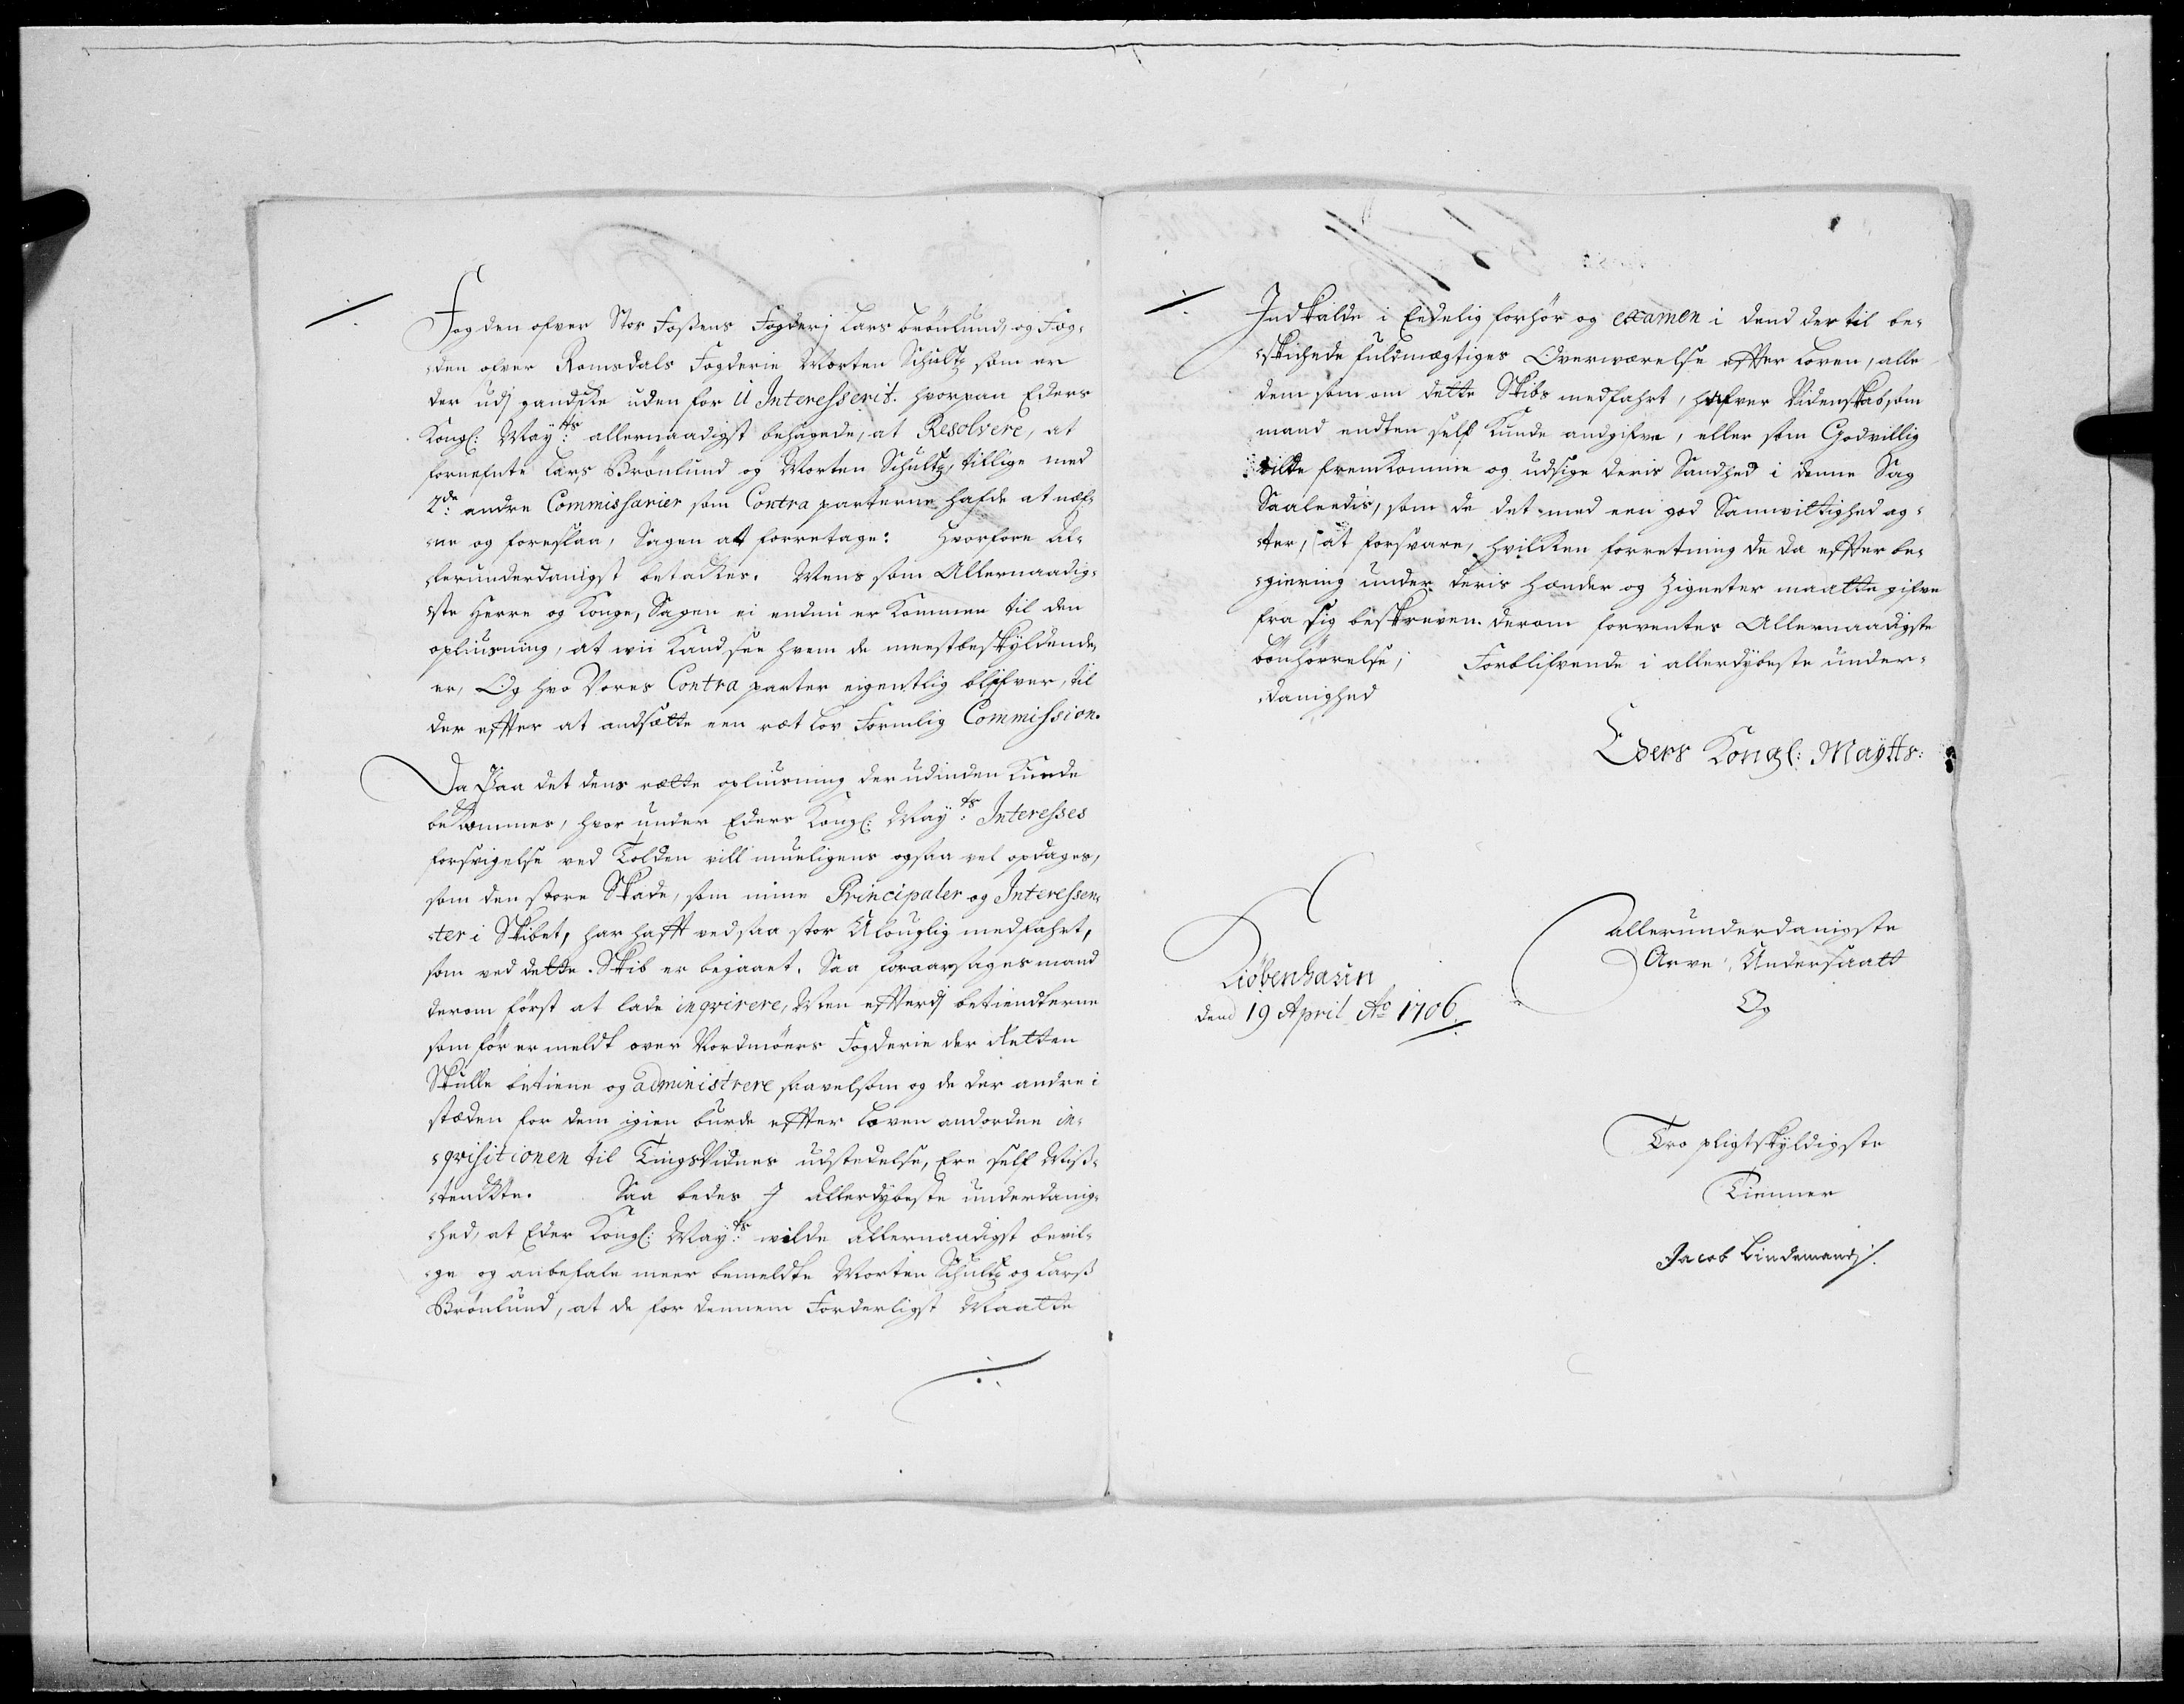 Fogden ofver Stor Foßens Fogderj Lars Brönlund, og Fog¬
den ofver Romsdals Fogderie Morten Schultz som er
der udj gandske uden for U Interesserit. hvorpaa Eders
Kongl: Mayts: allernaadigst behagede, at Resolvere, at
fornefnte Lars Brönlund og Morten Schultz, tillige med
2de: andre Commissarier som Contra parterne hafde at næf¬
ne og foreslaa, Sagen at forretage: hvorfore Al¬
lerunderdanigst betackes. Mens som Allernaadig¬
ste Herre og Konge, Sagen ei endnu er Kommen til den
opliusning, at wii Kand see hvem de meestbeskyldende
er, Og hvo Vores Contra parter eigentlig blifver, til
der effter at andsætte een ræt Lov Formlig Commission.
Da Paa det dens rætte opliusning der udinden Kunde
bekommes, hvor under Eders Kongl: Mayts: Interesses
forsvigelse ved Tolden vill mueligens ogsaa vel opdages,
som den store Skade, som mine Principaler og Interessen¬
ter i Skibet, har hafft ved saa stor Ulouglig medfahrt,
som ved dette Skib er begaaet. Saa foraarsages mand
derom först at lade inqvirere, Men efterdj betiendterne
som för er meldt over Nordmöers Fogderie der Retten
Skulle betiene og administrere saavelsom og de der andre i
stæden for dem igien burde effter Loven andordne in¬
qvisitionen til Tings Vidnes udstedelse, Ere self Miß¬
tenckte. Saa bedes J allerdybeste underdanig¬
hed, at Eder Kongl: Mayts: wilde allernaadigst bevil¬
ge og anbefale meer bemeldte Morten Schultz og Larß
Brönlund, at de for dennem Forderligst Maatte
Indkalde i Eedelig forhör og examen i dend der til be¬
skichede fuldmægtiges Overwærelse effter Loven, alle
dem som om dette Skibs medfahrt, hafver Videnskab, som
mand endten self Kunde andgifve, eller som Godvillig
vilde fremkomme og udsige deris Sandhed i denne Sag
Saaleedis, som de det med een god Samvittighed ag¬
ter, at forsvare, hvilken forretning de da effter be¬
giering under deris hænder og Zigneter maatte gifve
fra sig beskreven. derom forventes Allernaadigste
bönhörrelse; Forblifvende i allerdybeste under¬
danighed
Eders Kongl: Maytts:
Allerunderdanigste
Arve Undersaatt
Og
Kiöbenhafn
dend 19 April Ao 1706
Tro pligtskyldigste
Tienner
Jacob Lindemand